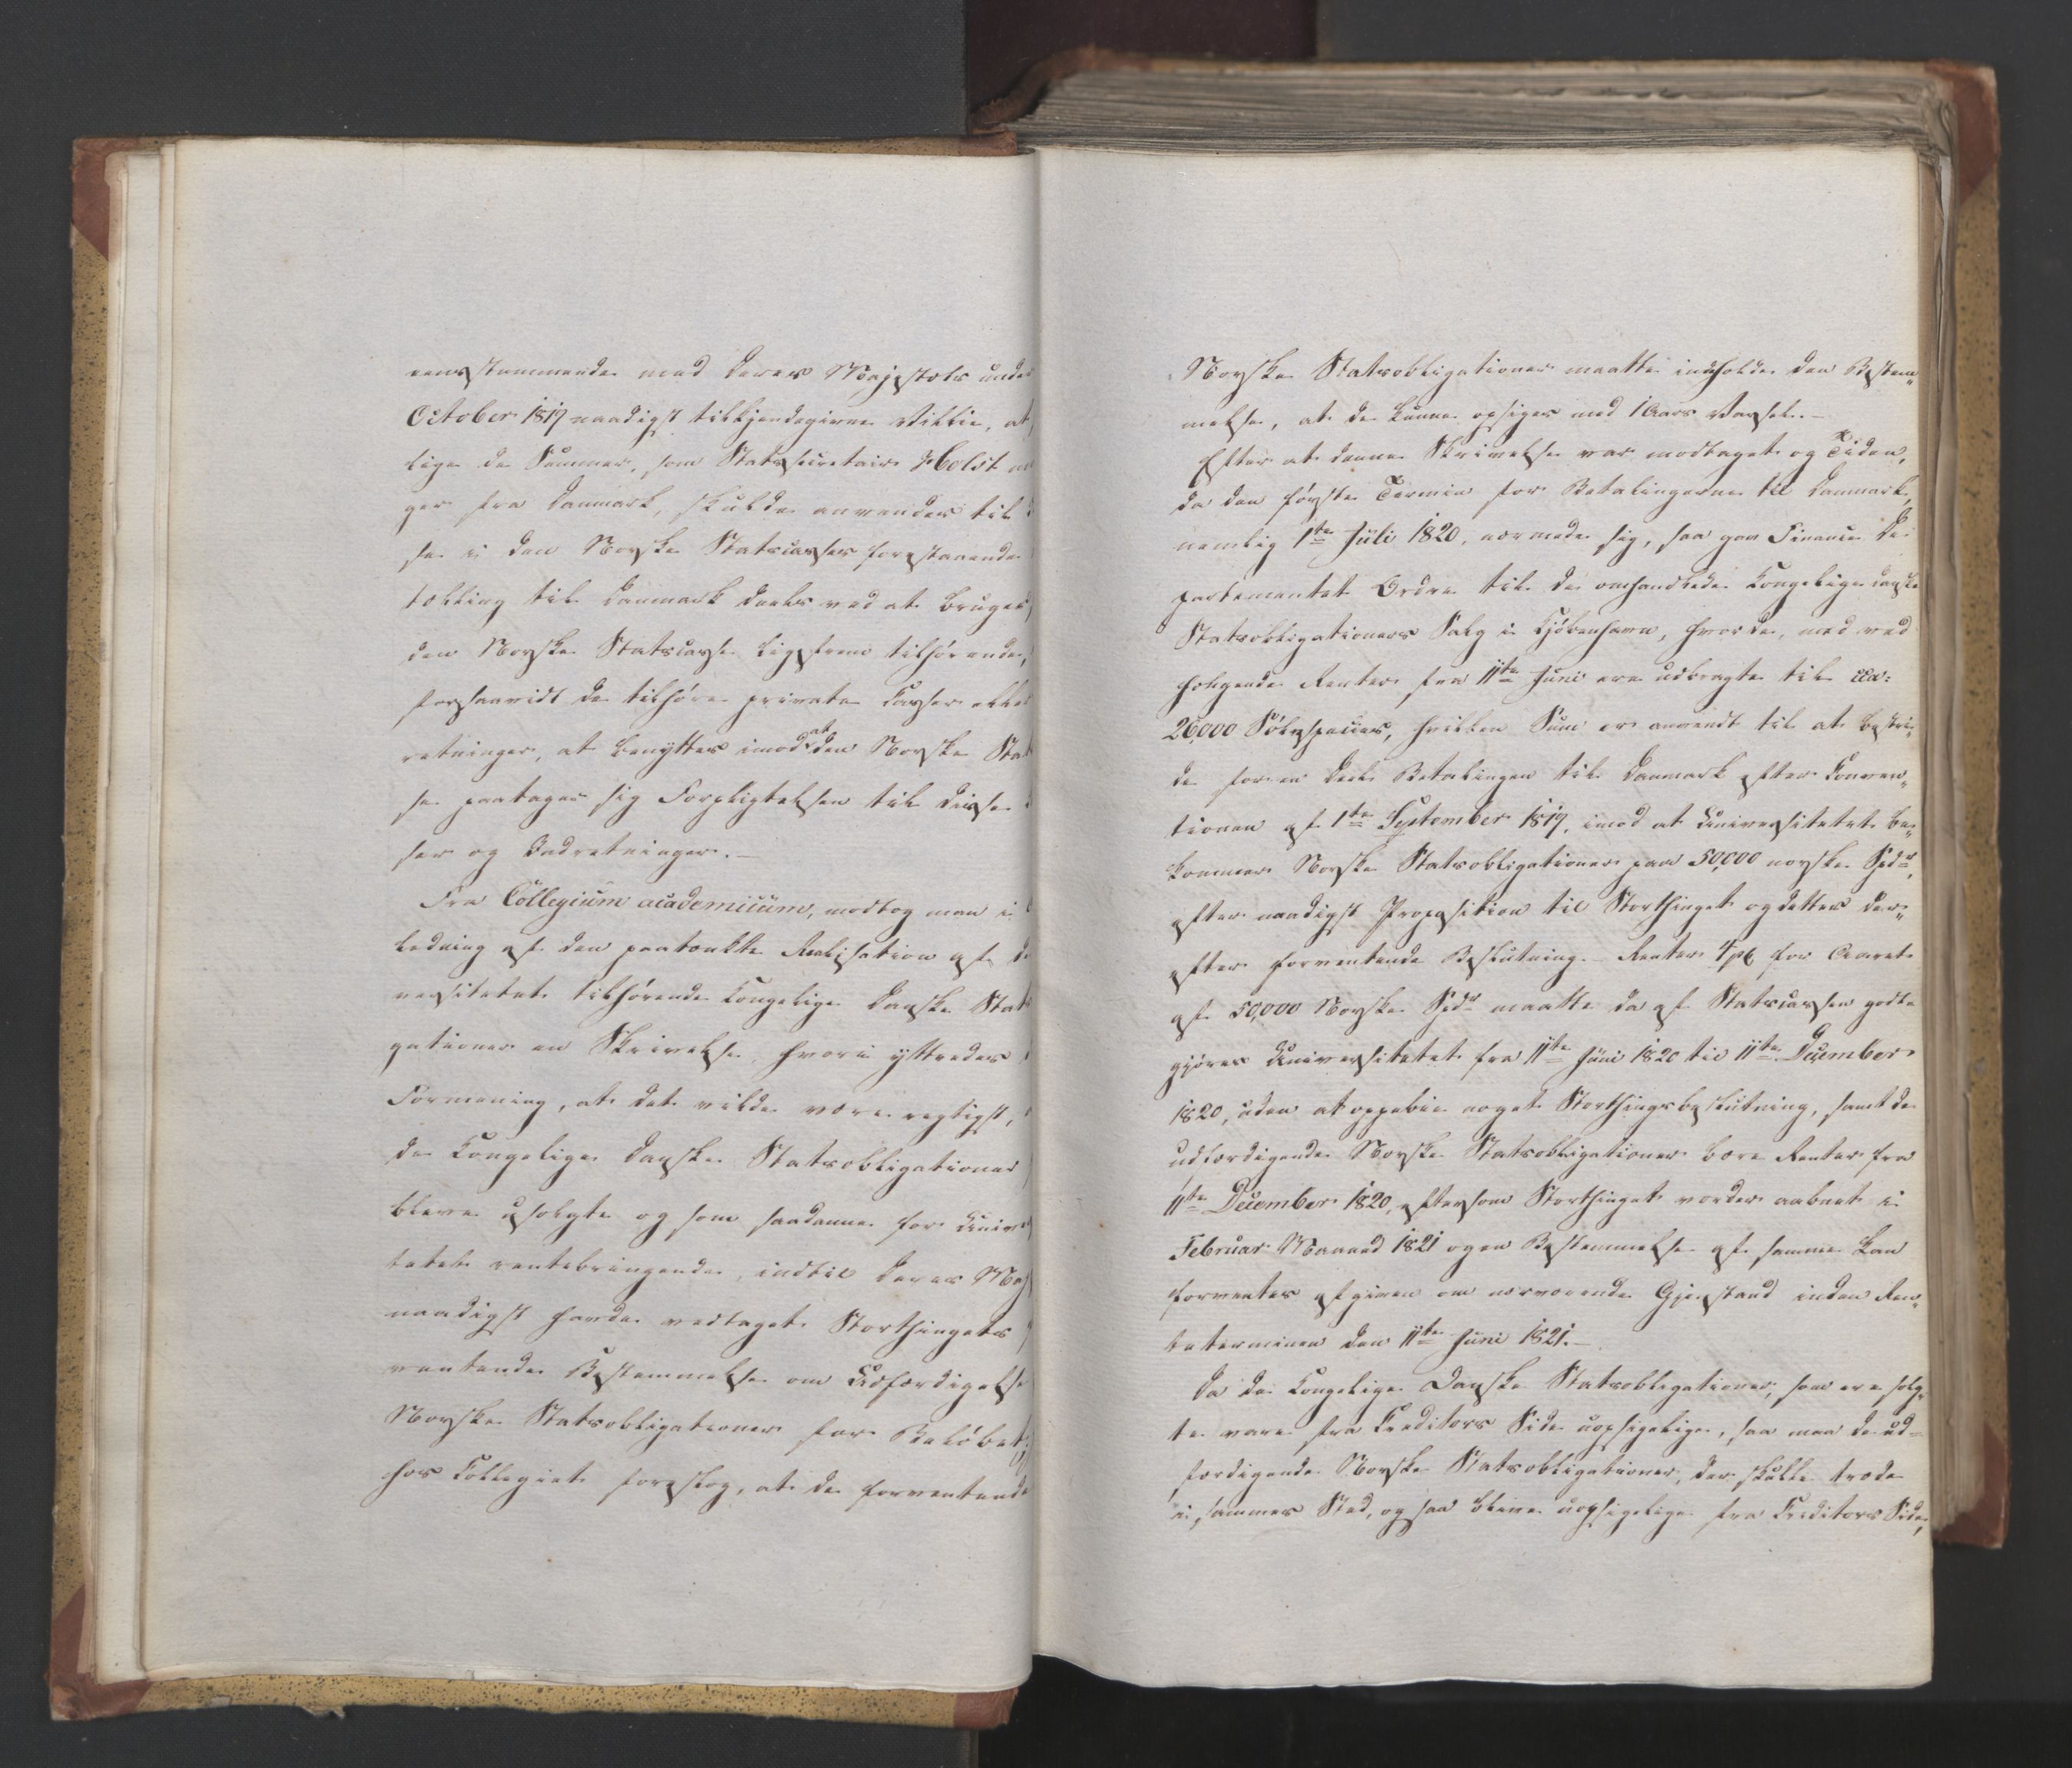 eensstemmende med Deres Majestæts under
October 1819 naadigst tilkjendegivne Villie, at
lige de Summer, som Statssecretair Holst
ger fra Danmark, skulde anvendes til
se i den Norske Statscasses forestaaende
tælling til Danmark deels ved at bruges
den Norske Statscasse ligefrem tilhørende,
forsaavidt de tilhøre private Casser eller
retninger, at benyttes imod at den Norske Stats
se paatager sig Forpligtelsen til disse
ser og Indretninger.-
Fra Collegium academicum, modtog man i
ledning af den paatænkte Realisation af de
versitetet tilhørende Kongelige Danske Stats
gationer en Skrivelse hvori yttredes
Formening, at det vilde være rigtigst,
de Kongelige Danske Statsobligationer
bleve usolgte og som saadanne for Univer
tetet rentebringende, indtil Deres Maj
naadigst havde modtaget Storthingets
ventende Bestemmelse om Udfærdigelse
Norske Statsobligationer for Beløbet,
hos Collegiet foreslog, at de forventende
Norske Statsobligationer maatte indeholde den Bestem„
melse, at de kunne opsiges med 1 Aars Varsel.-
Efter at denne Skrivelse var modtaget og Tiden,
da den første Termin for Betalingerne til Danmark,
nemlig 1ste Juli 1820, nærmede sig, saa gav Finance De„
partementet Ordre til de omhandlede Kongelige danske
Statsobligationers Salg i Kjøbenhavn, hvor de, med ved
hængende Renter fra 11te Juni ere udbragte til cca:
26,000 Sølvspecies, hvilken Sum er anvendt til at bestri„
de for en Deel Betalingen til Danmark efter Conven„
tionen af 1ste September 1819, imod at Universitetet be„
kommer Norske Statsobligationer paa 50,000 norske Spdr,
efter naadigst Proposition til Storthinget og dettes der„
efter forventende Beslutning.- Renter 4 pC for Aaret
af 50,000 Norske Spdr maatte da af Statscassen godt„
gjøres Universitetet fra 11te Juni 1820 til 11te December
1820, uden at oppebie noget Storthingsbeslutning, samt de
udfærdigende Norske Statsobligationer bære Renter fra
11te December 1820, eftersom Storthinget vorder aabnet i
Februar Maaned 1821 og en Bestemmelse af samme kan
forventes afgiven om nærværende Gjenstand inden Ren„
teterminen den 11te Juni 1821.-
Da de Kongelige Danske Statsobligationer, som ere solg„
te vare fra Creditors Side uopsigelige, saa maa de ud„
færdigende Norske Statsobligationer, der skulle træde
i sammes Sted, ogsaa blive uopsigelige fra Creditors Side,